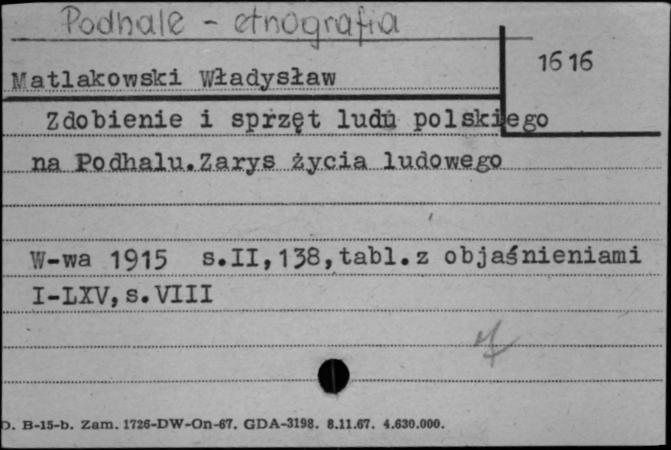 Podhale - etnografia
1616
Matlakowski Władysław
Zdobienie i sprzęt ludu polskiego
na Podhalu.Zarys życia ludowego
W-wa 1915 s.II,138,tabl.z objaśnieniami
I-LXV,s.VIII
D. B-15-b. Zam. 1726-DW-On-67. GDA-3198. 8.11.67. 4.630.000.